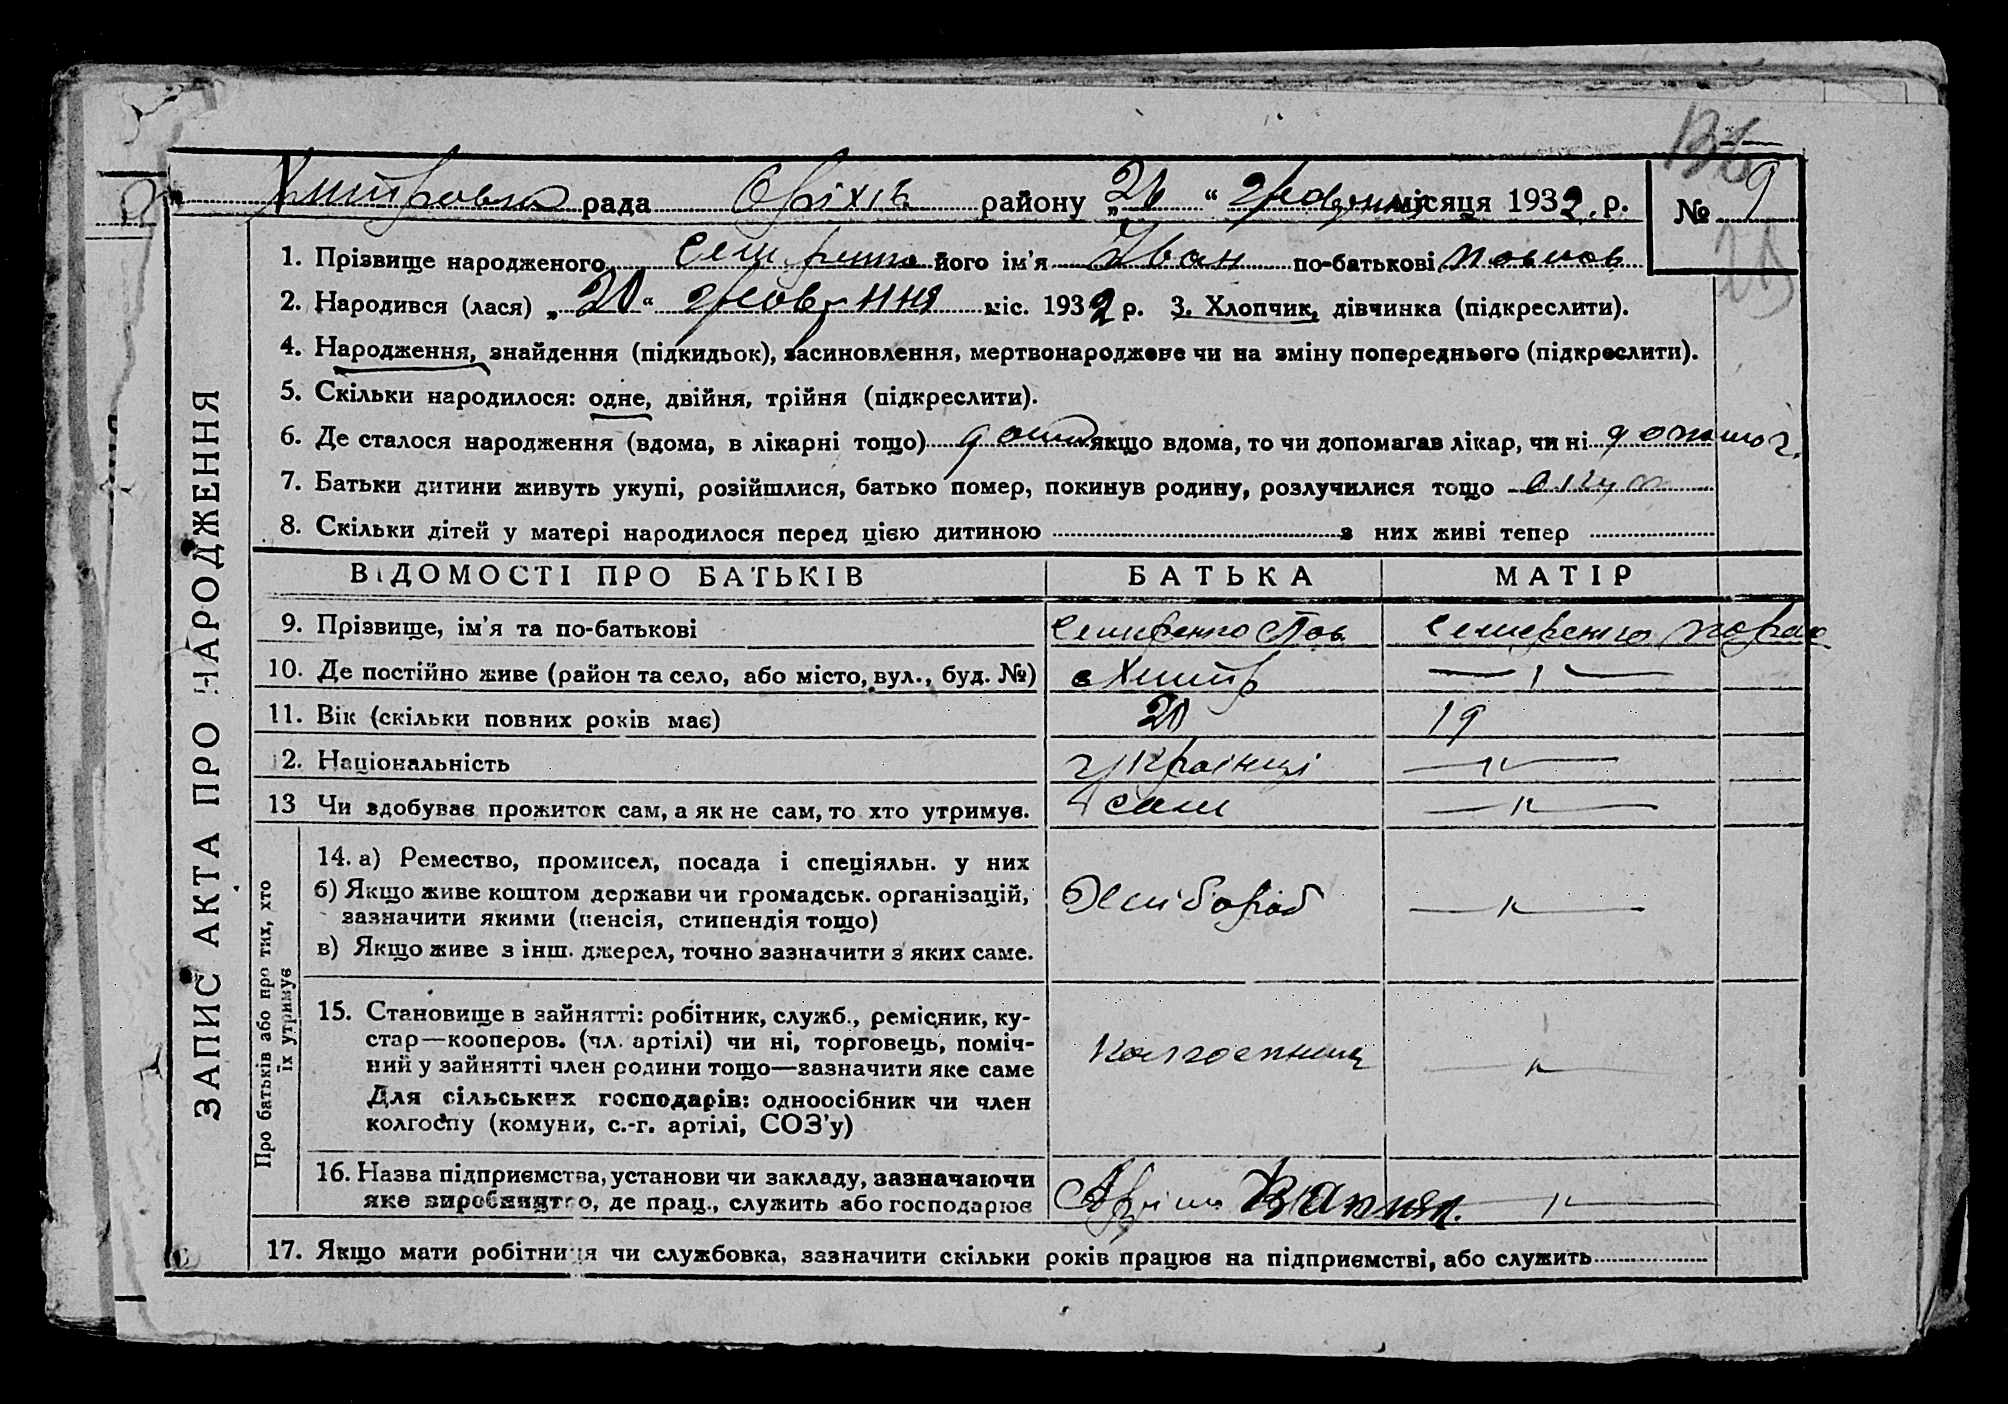 Хитровка рада Оріхів району „20“ жовтня місяця 1932 р. № 9
1. Прізвище народженого Семиренко його ім'я Іван по-батькові
2. Народився (лася) „20“ жовтння міс. 1932 р. 3. Хлопчик, дівчинка (підкреслити).
4. Народження, знайдення (підкидьок), засиновлення, мертвонароджене чи на зміну попереднього (підкреслити).
5. Скільки народилося: одне, двійня, трійня (підкреслити).
6. Де сталося народження (вдома, в лікарні тощо) дома якщо вдома, то чи допомагав лікар, чи ні допомог.
7. Батьки дитини живуть укупі, розійшлися, батько помер, покинув родину, розлучилися тощо
8. Скільки дітей у матері народилося перед цією дитиною з них живі тепер
ЗАПИС АКТА ПРО НАРОДЖЕННЯ
ВІДОМОСТІ ПРО БАТЬКІВ БАТЬКА МАТІР
9. Прізвище, ім'я та по-батькові Семиренко Семиренко
10. Де постійно живе (район та село, або місто, вул., буд. №) с Хитр — „ —
11. Вік (скільки повних років має) 20 19
12. Національність українці — „ —
13 Чи здобуває прожиток сам, а як не сам, то хто утримує. сам — „ —
Про батьків або про тих, хто
їх утримує
14. а) Ремество, промисел, посада і спеціяльн. у них
б) Якщо живе коштом держави чи громадськ. організацій,
зазначити якими (пенсія, стипендія тощо)
в) Якщо живе з інш. джерел, точно зазначити з яких саме.
Хлібороб — „ —
15. Становище в зайнятті: робітник, служб., ремісник, ку-
стар—кооперов. (чл. артілі) чи ні, торговець, поміч-
ний у зайнятті член родини тощо—зазначити яке саме
Для сільських господарів: одноосібник чи член
колгоспу (комуни, с.-г. артілі, СОЗ'у)
Колгоспник — „ —
16. Назва підприємства, установи чи закладу, зазначаючи
яке виробництво, де прац., служить або господарює
— „ —
17. Якщо мати робітниця чи службовка, зазначити скільки років працює на підприємстві, або служить